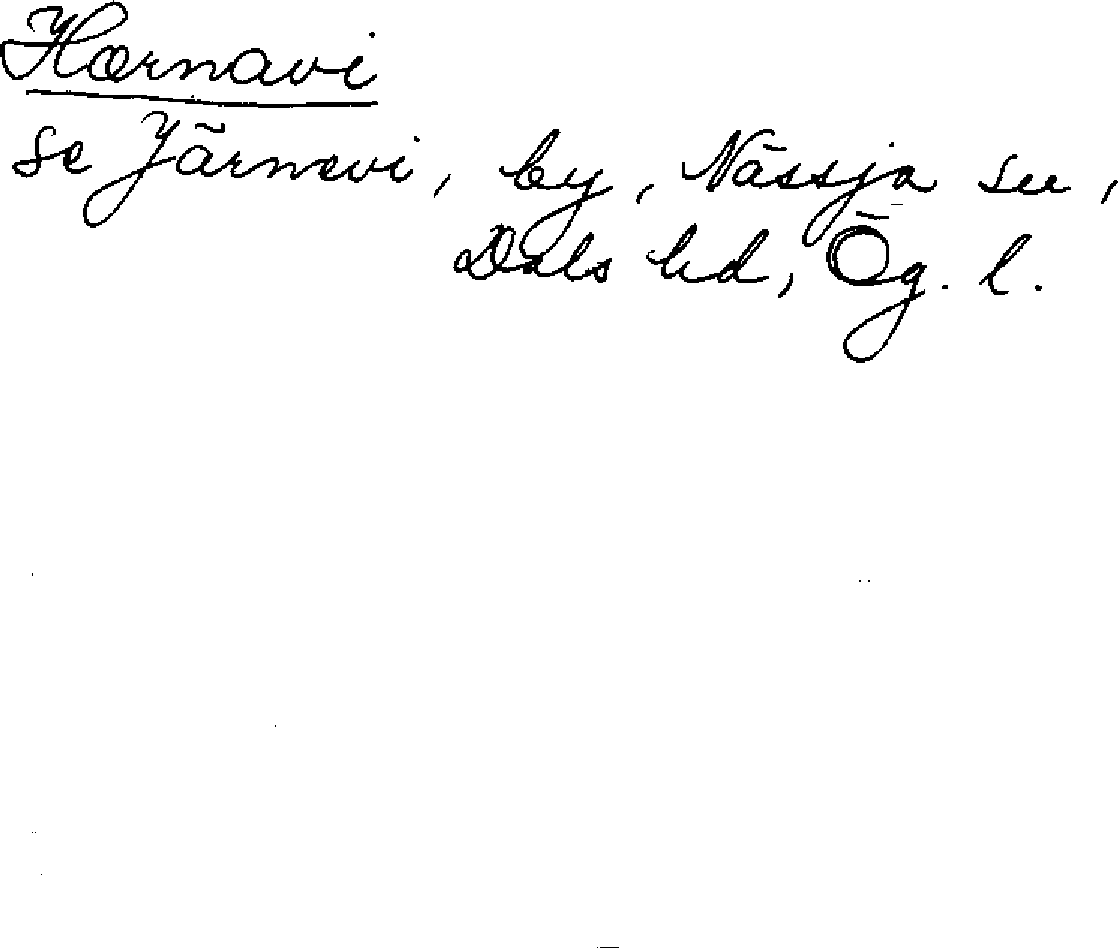 Hærnavi
se Järnevi, by, Nässja sn,
Dals hd, Ög. l.